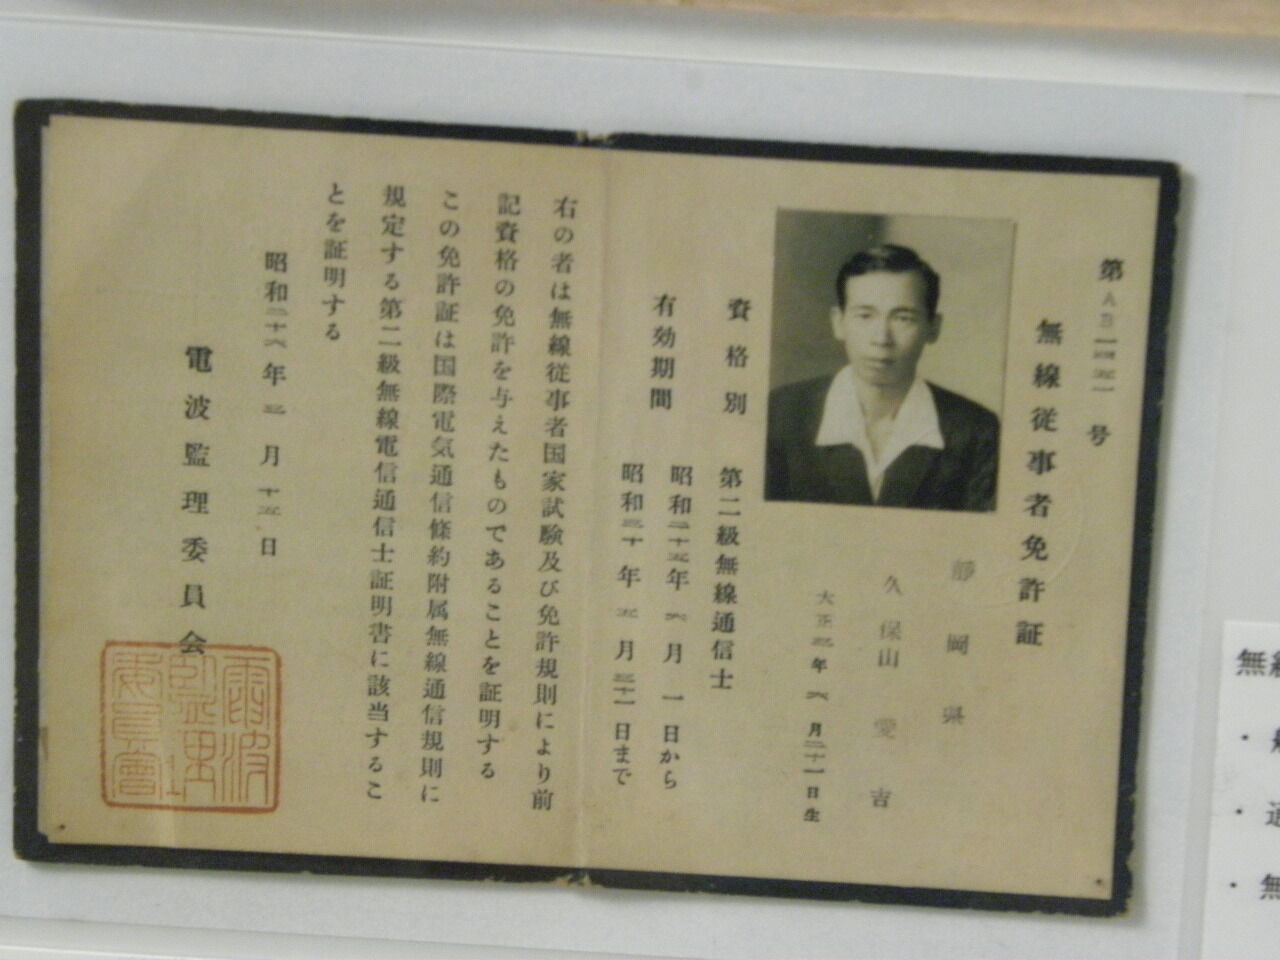 第AB一四五一号
無線従事者免許証
靜岡県
久保山愛吉
大正三年六月二十一日生
資格別 第二級無線通信士
有効期間 昭和二十五年六月一日から
昭和三十年五月三十一日まで
右の者は無線従事者国家試験及び免許規則により前
記資格の免許を与えたものであることを証明する
この免許証は国際電気通信條約附属無線通信規則に
規定する第二級無線電信通信士証明書に該当するこ
とを証明する
昭和二十六年三月十五日
電波監理委員会
電波
監理
委員會
無線
・
・
・無